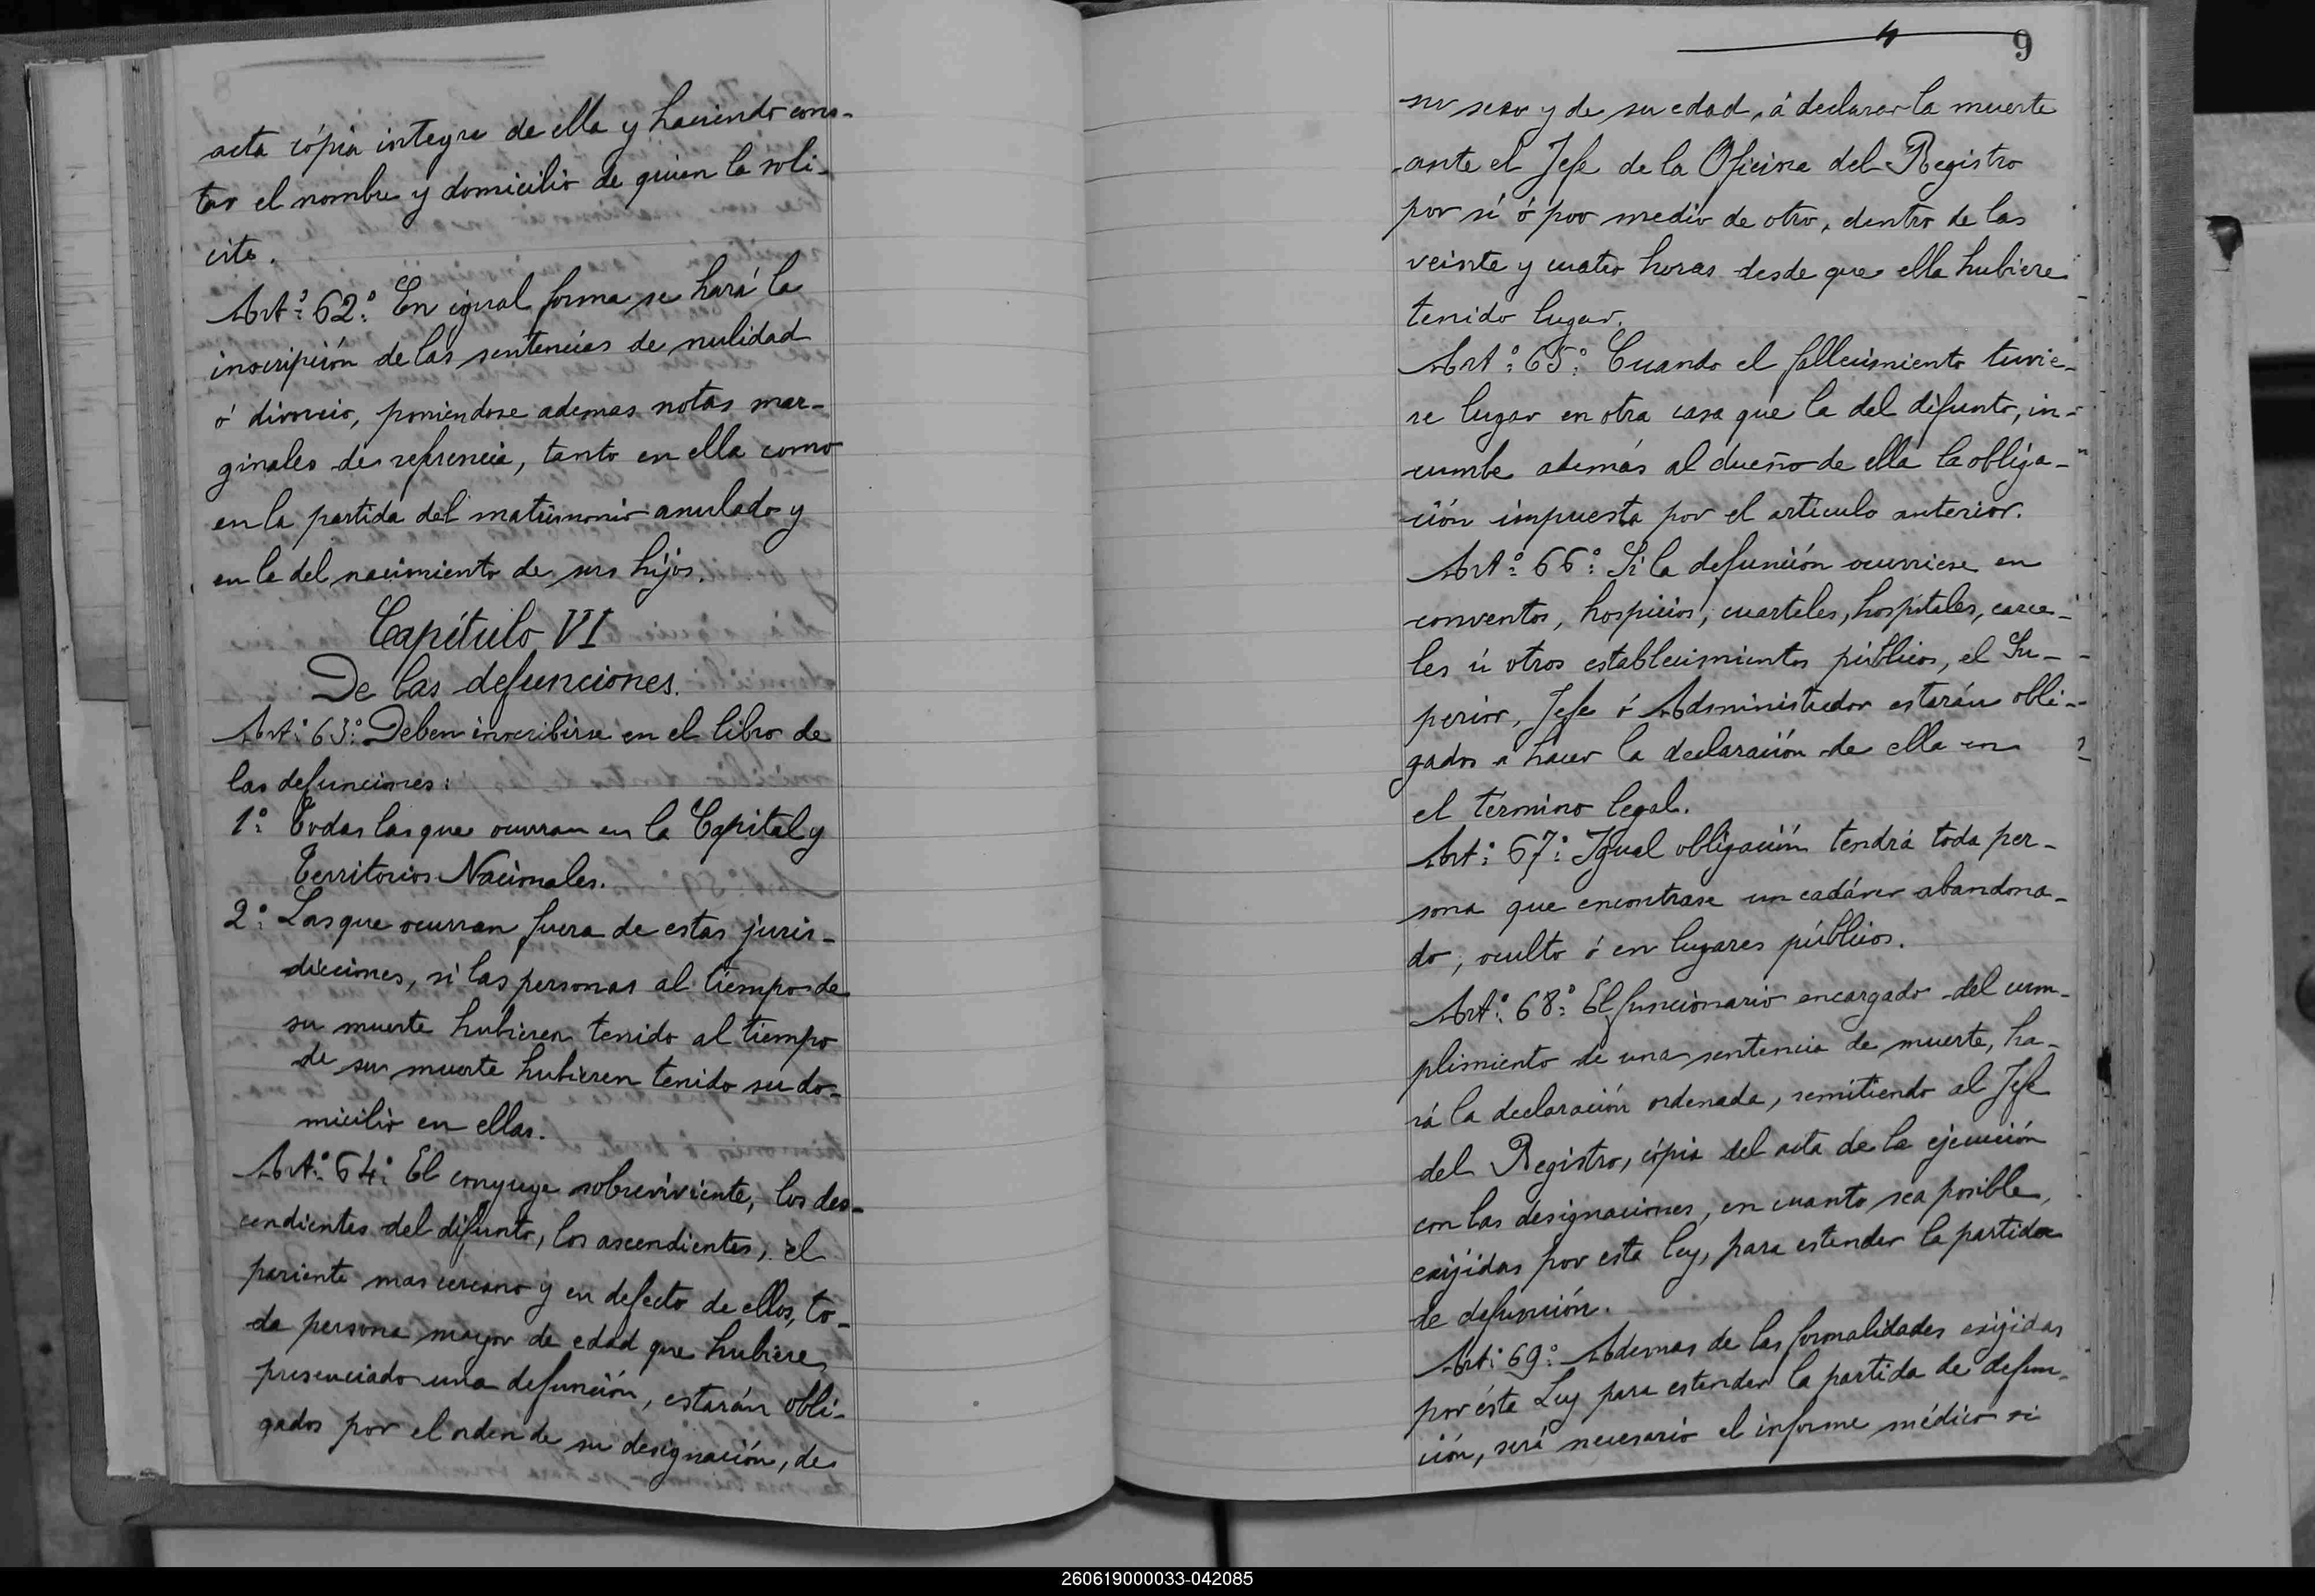 acta cópia integra de ella y haciendo cons-
tar el nombre y domicilio de quien la soli-
cite.
Artº 62º En igual forma se hará la
inscripción de las sentencias de nulidad
ó divorcio, poniendose ademas notas mar-
ginales de refrencia, tanto en ella como
en la partida del matrimonio anulado y
en la del nacimiento de sus hijos.
Capítulo VI
De las defunciones.
Artº 63º Deben inscribirse en el libro de
las defunciones:
1º Todas las que ocurran en la Capital y
Territorios Nacionales.
2º Las que ocurran fuera de estas juris-
dicciones, si las personas al tiempo de
su muerte hubieren tenido al tiempo
de su muerte hubieren tenido su do-
micilio en ellas.
Artº 64º El conyuge sobreviviente, los des-
cendientes del difunto, los ascendientes, el
pariente mas cercano y en defecto de ellos, to-
da persona mayor de edad que hubiere
presenciado una defunción, estarán obli-
gados por el orden de su designación, de
9
su sexo y de su edad, á declarar la muerte
ante el Jefe de la Oficina del Registro
por sí ó por medio de otro, dentro de las
veinte y cuatro horas desde que ella hubiere
tenido lugar.
Artº 65º Cuando el fallecimiento tuvie-
re lugar en otra casa que la del difunto, in-
cumbe además al dueño de ella la obliga-
ción impuesta por el artículo anterior.
Artº 66º Si la defunción ocurriese en
conventos, hospicios, cuarteles, hospitales, carce-
les ú otros establecimientos públicos, el Su-
perior, Jefe ó Administrador estarán obli-
gados a hacer la declaración de ella en
el término legal.
Artº 67º Igual obligación tendrá toda per-
sona que encontrase un cadáver abandona-
do, oculto ó en lugares públicos.
Artº 68º El funcionario encargado del cum-
plimiento de una sentencia de muerte, ha-
rá la declaración ordenada, remitiendo al Jefe
del Registro, cópia del acta de la ejecución
con las designaciones, en cuanto sea posible,
exijidas por esta ley, para estender la partida
de defunción.
Artº 69º Ademas de las formalidades exijidas
por ésta Ley para estender la partida de defun-
ción, será necesario el informe médico si
260619000033-042085